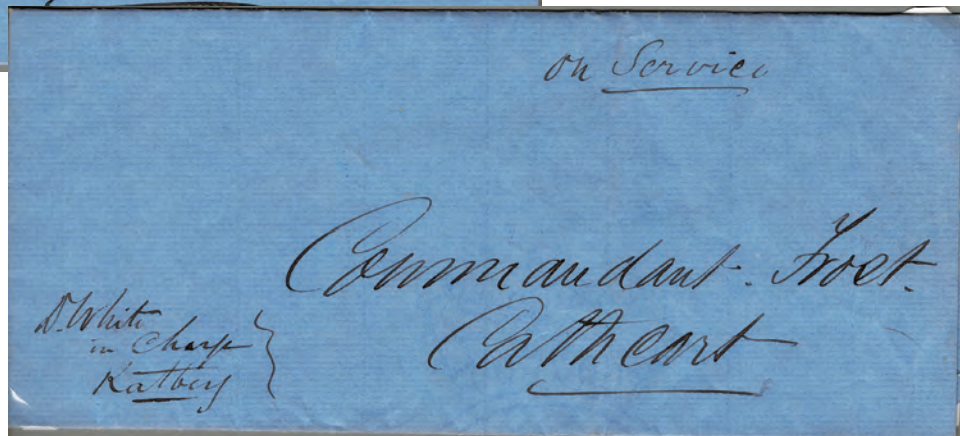 on Service
Commandant. Frost.
Cathcart
D. White
in Charge
Katberg